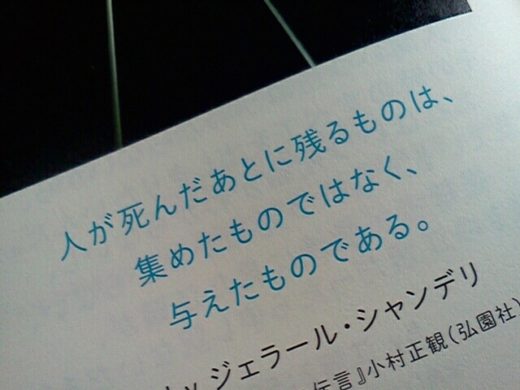 人が死んだあとに残るものは、
集めたものではなく、
与えたものである。
ジェラール・シャンデリ
伝言』小村正観(弘園社)